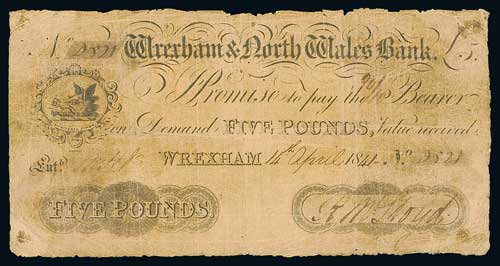 No 2521 Wrexham & North Wales Bank. £5
I Promise to pay the Bearer
on Demand FIVE POUNDS, Value received
Entd. WREXHAM 14th April 1841 No 2521
FIVE POUNDS